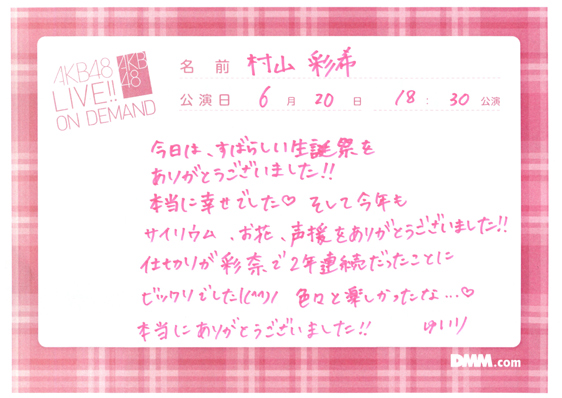 AKB48
LIVE!!
ON DEMAND
AKB
48
名 前 村山 彩希
公演日 6 月 20 日 18 : 30 公演
今日は、すばらしい生誕祭を
ありがとうございました!!
本当に幸せでした♡ そして今年も
サイリウム、お花、声援をありがとうございました!!
仕切りが彩奈で2年連続だったことに
ビックリでした!(^^)! 色々と楽しかったな...♡
本当にありがとうございました!! ゆいり
DMM.com